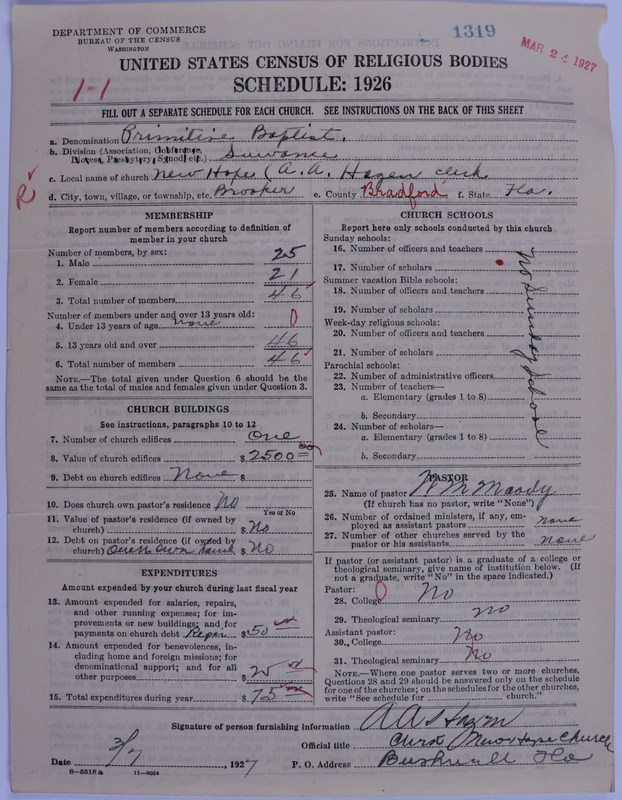 DEPARTMENT OF COMMERCE
BUREAU OF THE CENSUS
WASHINGTON
1319
MAR 24 1927
UNITED STATES CENSUS OF RELIGIOUS BODIES
SCHEDULE: 1926
1-1
FILL OUT A SEPARATE SCHEDULE FOR EACH CHURCH. SEE INSTRUCTIONS ON THE BACK OF THIS SHEET
a. Denomination Primitive Baptist.
b. Division (Association, Conference, Diocese, Presbytery, Synod, etc.) Suwanee
c. Local name of church New Hope (A. A. Hazen Clerk
R
d. City, town, village, or township, etc. Brooker e. County Bradford f. State Fla.
MEMBERSHIP
Report number of members according to definition of
member in your church
Number of members, by sex:
1. Male 25
2. Female 21
3. Total number of members 46
Number of members under and over 13 years old:
4. Under 13 years of age none 0
5. 13 years old and over 46
6. Total number of members 46
NOTE.—The total given under Question 6 should be the
same as the total of males and females given under Question 3.
CHURCH BUILDINGS
See instructions, paragraphs 10 to 12
7. Number of church edifices One
8. Value of church edifices $ 2500 00
9. Debt on church edifices None $
10. Does church own pastor's residence No
Yes or No
11. Value of pastor's residence (if owned by
church) $ No
12. Debt on pastor's residence (if owned by
church) $ No
EXPENDITURES
Amount expended by your church during last fiscal year
13. Amount expended for salaries, repairs,
and other running expenses; for im-
provements or new buildings; and for
payments on church debt Reper $ 50
14. Amount expended for benevolences, in-
cluding home and foreign missions; for
denominational support; and for all
other purposes $ 25
15. Total expenditures during year $ 75
CHURCH SCHOOLS
Report here only schools conducted by this church
Sunday schools:
16. Number of officers and teachers
17. Number of scholars
Summer vacation Bible schools:
18. Number of officers and teachers
19. Number of scholars
Week-day religious schools:
20. Number of officers and teachers
21. Number of scholars
Parochial schools:
22. Number of administrative officers
23. Number of teachers—
a. Elementary (grades 1 to 8)
b. Secondary
24. Number of scholars—
a. Elementary (grades 1 to 8)
b. Secondary
No Sunday School
PASTOR
25. Name of pastor W M Moody
(If church has no pastor, write "None")
26. Number of ordained ministers, if any, em-
ployed as assistant pastors none
27. Number of other churches served by the
pastor or his assistants none
If pastor (or assistant pastor) is a graduate of a college or
theological seminary, give name of institution below. (If
not a graduate, write "No" in the space indicated.)
Pastor:
28. College 0 No
29. Theological seminary no
Assistant pastor:
30. College No
31. Theological seminary No
NOTE.—Where one pastor serves two or more churches,
Questions 28 and 29 should be answered only on the schedule
for one of the churches; on the schedules for the other churches,
write "See schedule for church."
Signature of person furnishing information A A Hazen
Official title Clerk New Hope Church
Date 3/7, 1927 P. O. Address Fla
8-5518a 11-9054